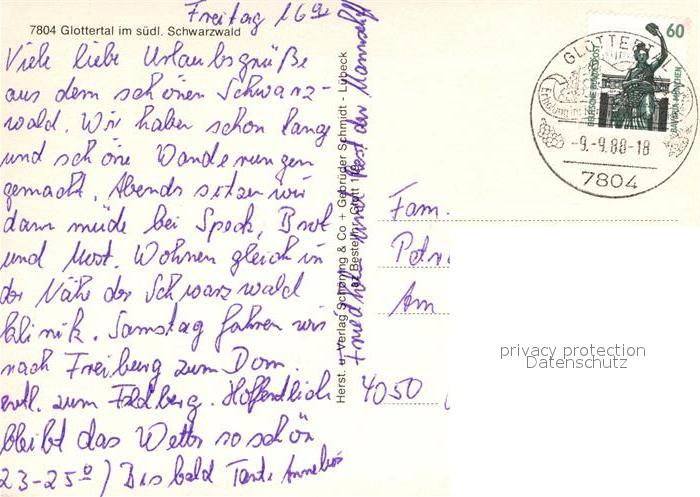 Freitag 16 Uhr
7804 Glottertal im südl. Schwarzwald
Viele liebe Urlaubsgrüße
aus dem schönen Schwarz-
wald. Wir haben schon lange
und schöne Wanderungen
gemacht. Abends sitzen wir
dann müde bei Speck, Brot
und Most. Wohnen gleich in
der Nähe der Schwarzwald
klinik. Samstag fahren wir
nach Freiburg zum Dom.
evtl. zum Feldberg. Hoffentlich
bleibt das Wetter so schön
23-25°) Bis bald Tante Annelies
Friedhelm und Rest der Mannschaft
Herst. u. Verlag Schöning & Co + Gebrüder Schmidt - Lübeck
Bestell
Glott
60
DEUTSCHE BUNDESPOST
BAVARIA MÜNCHEN
-9.-9.88-18
7804
Fam.
Am
4050
privacy protection
Datenschutz